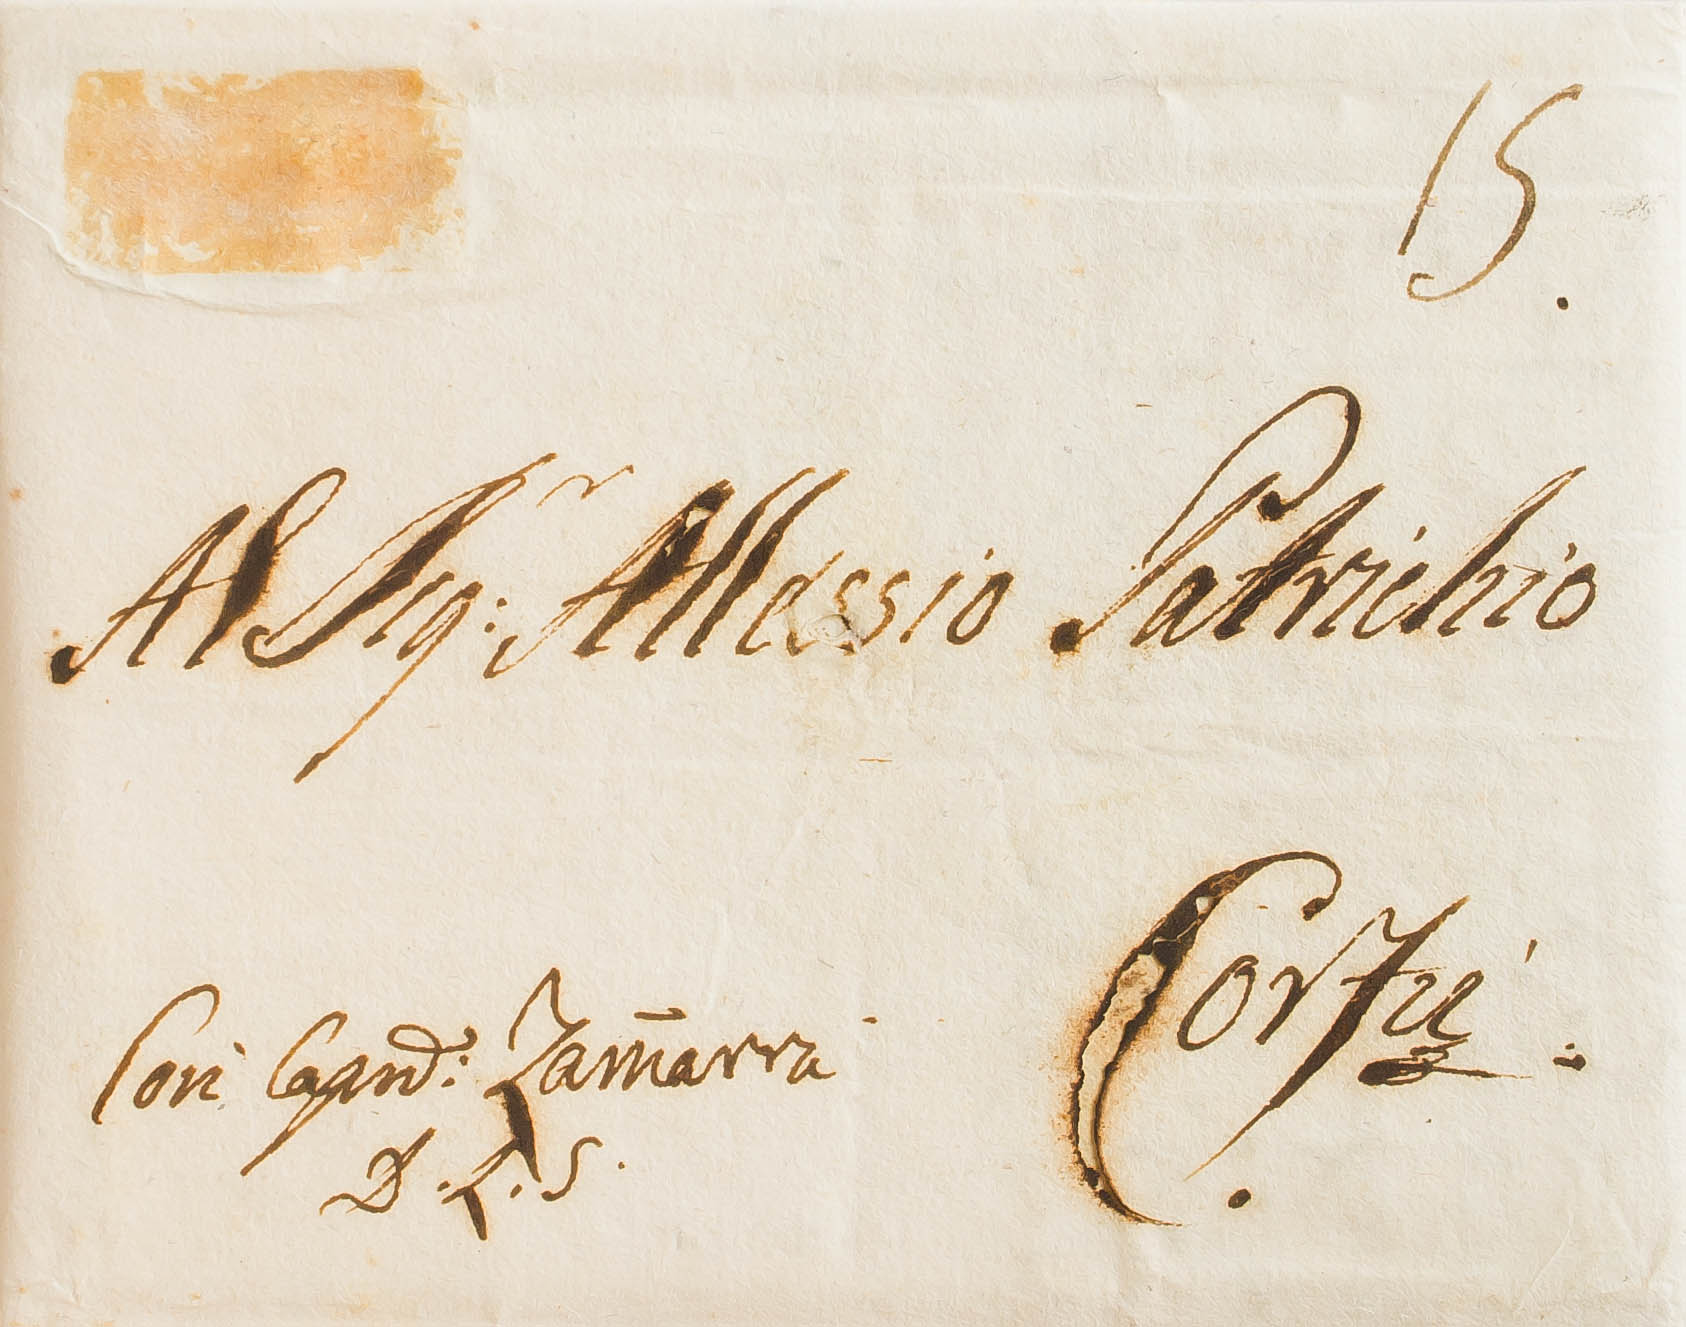 15.
Al Sig:r Allessio Patrichio
Corfù.
Con Capnd: Zam̄arra
D. L. S.